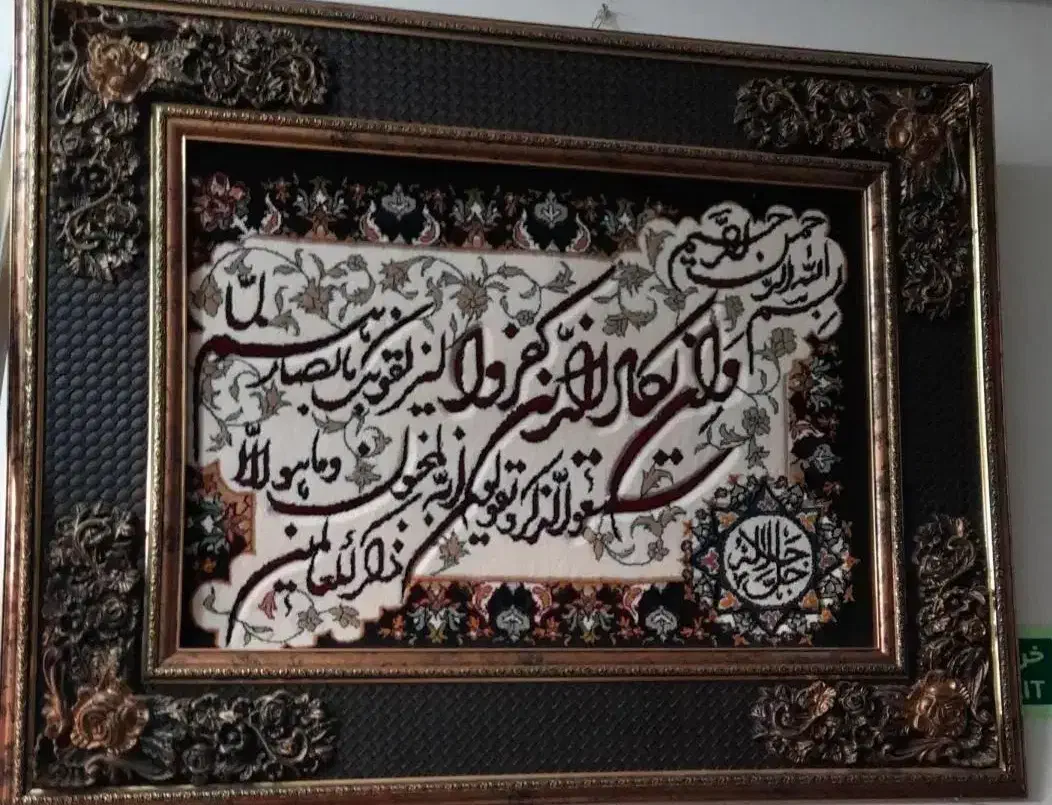 بسم الله الرحمن الرحیم
وان یکاد الذین کفروا لیزلقونک بابصارهم لما
سمعوا الذکر ویقولون انه لمجنون وما هو الا
ذکر للعالمین
جل جلاله
خر
IT